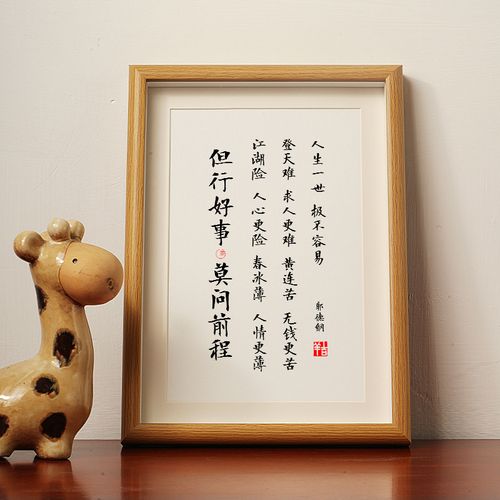 人生一世 极不容易
登天难 求人更难 黄连苦 无钱更苦
江湖险 人心更险 春冰薄 人情更薄
但行好事 莫问前程
郭德纲